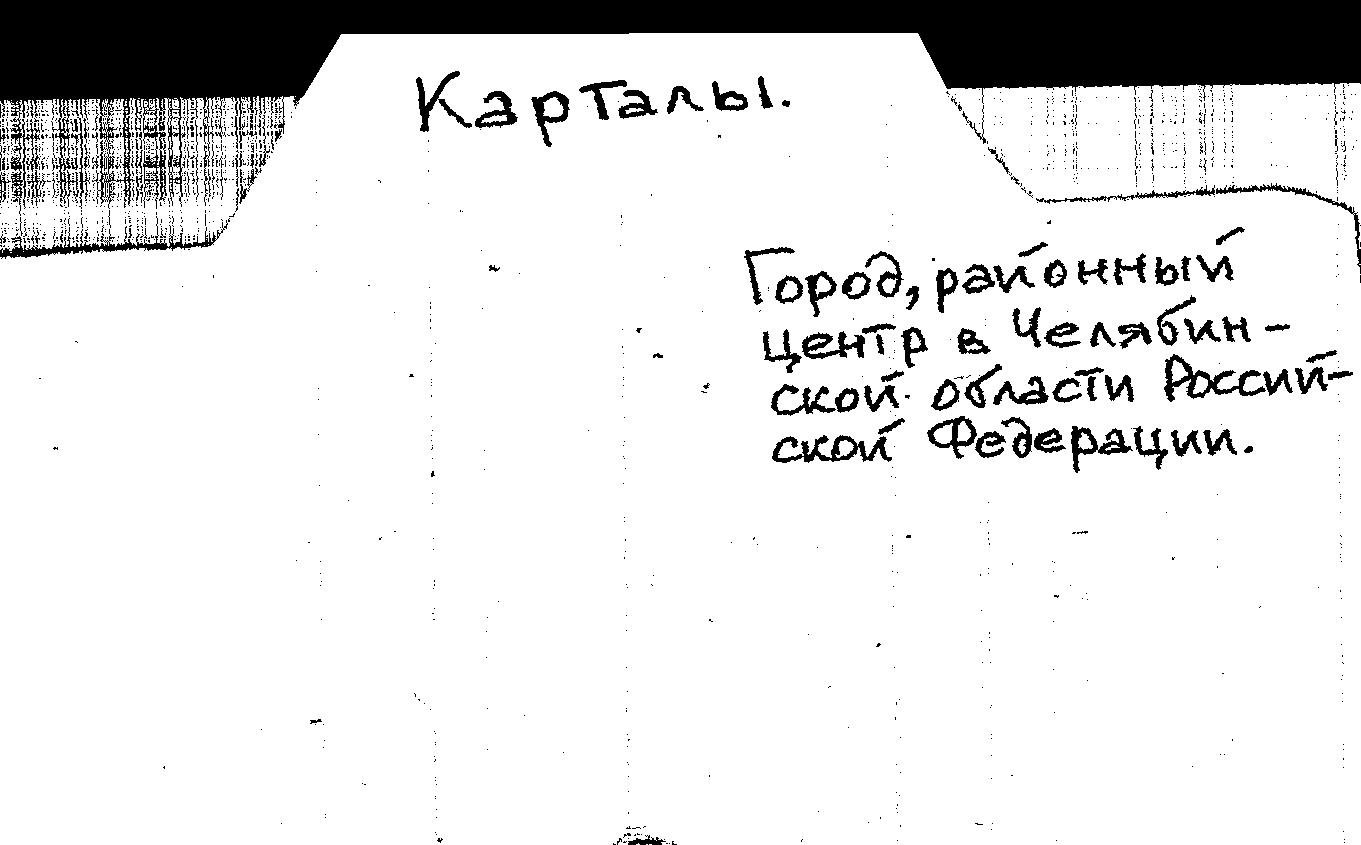 Карталы.
Город, районный
центр в Челябин-
ской области Россий-
ской Федерации.